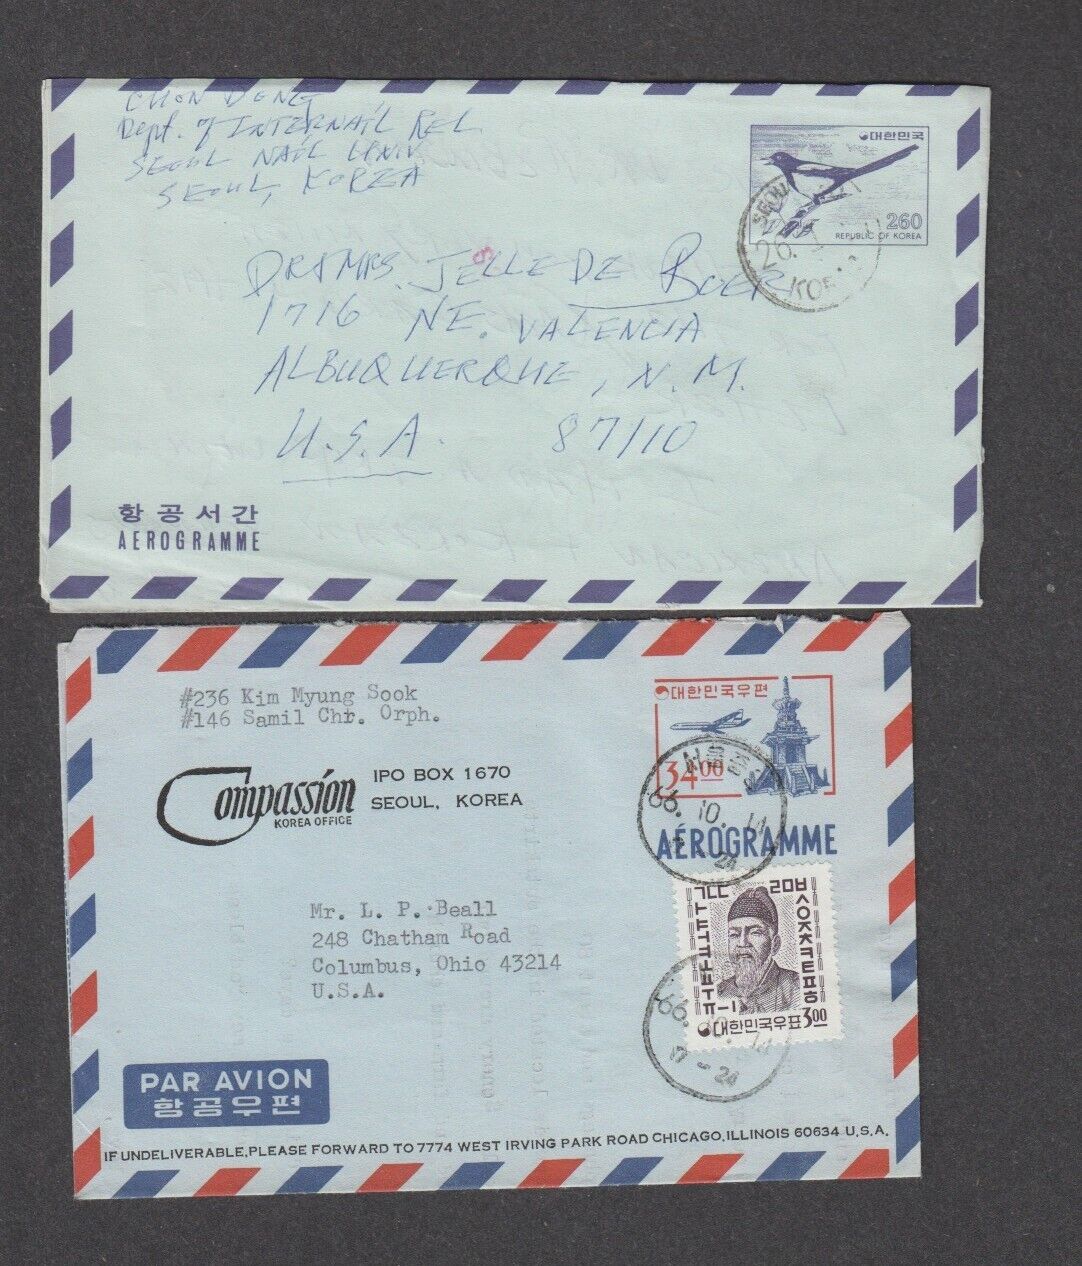 CHON DENG
Dept. of INTERNAT'L REL
SEOUL NAT'L UNIV
SEOUL, KOREA
대한민국
260
REPUBLIC OF KOREA
SEOUL
20.
KOREA
DR & MRS. JELLE DE BOER
1716 NE. VALENCIA
ALBUQUERQUE, N.M.
U.S.A. 87110
항공서간
AEROGRAMME
#236 Kim Myung Sook
#146 Samil Chr. Orph.
Compassion
KOREA OFFICE
IPO BOX 1670
SEOUL, KOREA
대한민국우편
34 00
서울중앙
66. 10. 14
24
AÉROGRAMME
Mr. L. P. Beall
248 Chatham Road
Columbus, Ohio 43214
U.S.A.
ㄱㄲㄸ ㄹㅁㅂ
ㅅㅇㅈㅊㅋㅌㅍㅎ
대한민국우표 3.00
66. 10. 14
17 - 24
PAR AVION
항공우편
IF UNDELIVERABLE, PLEASE FORWARD TO 7774 WEST IRVING PARK ROAD CHICAGO, ILLINOIS 60634 U.S.A.